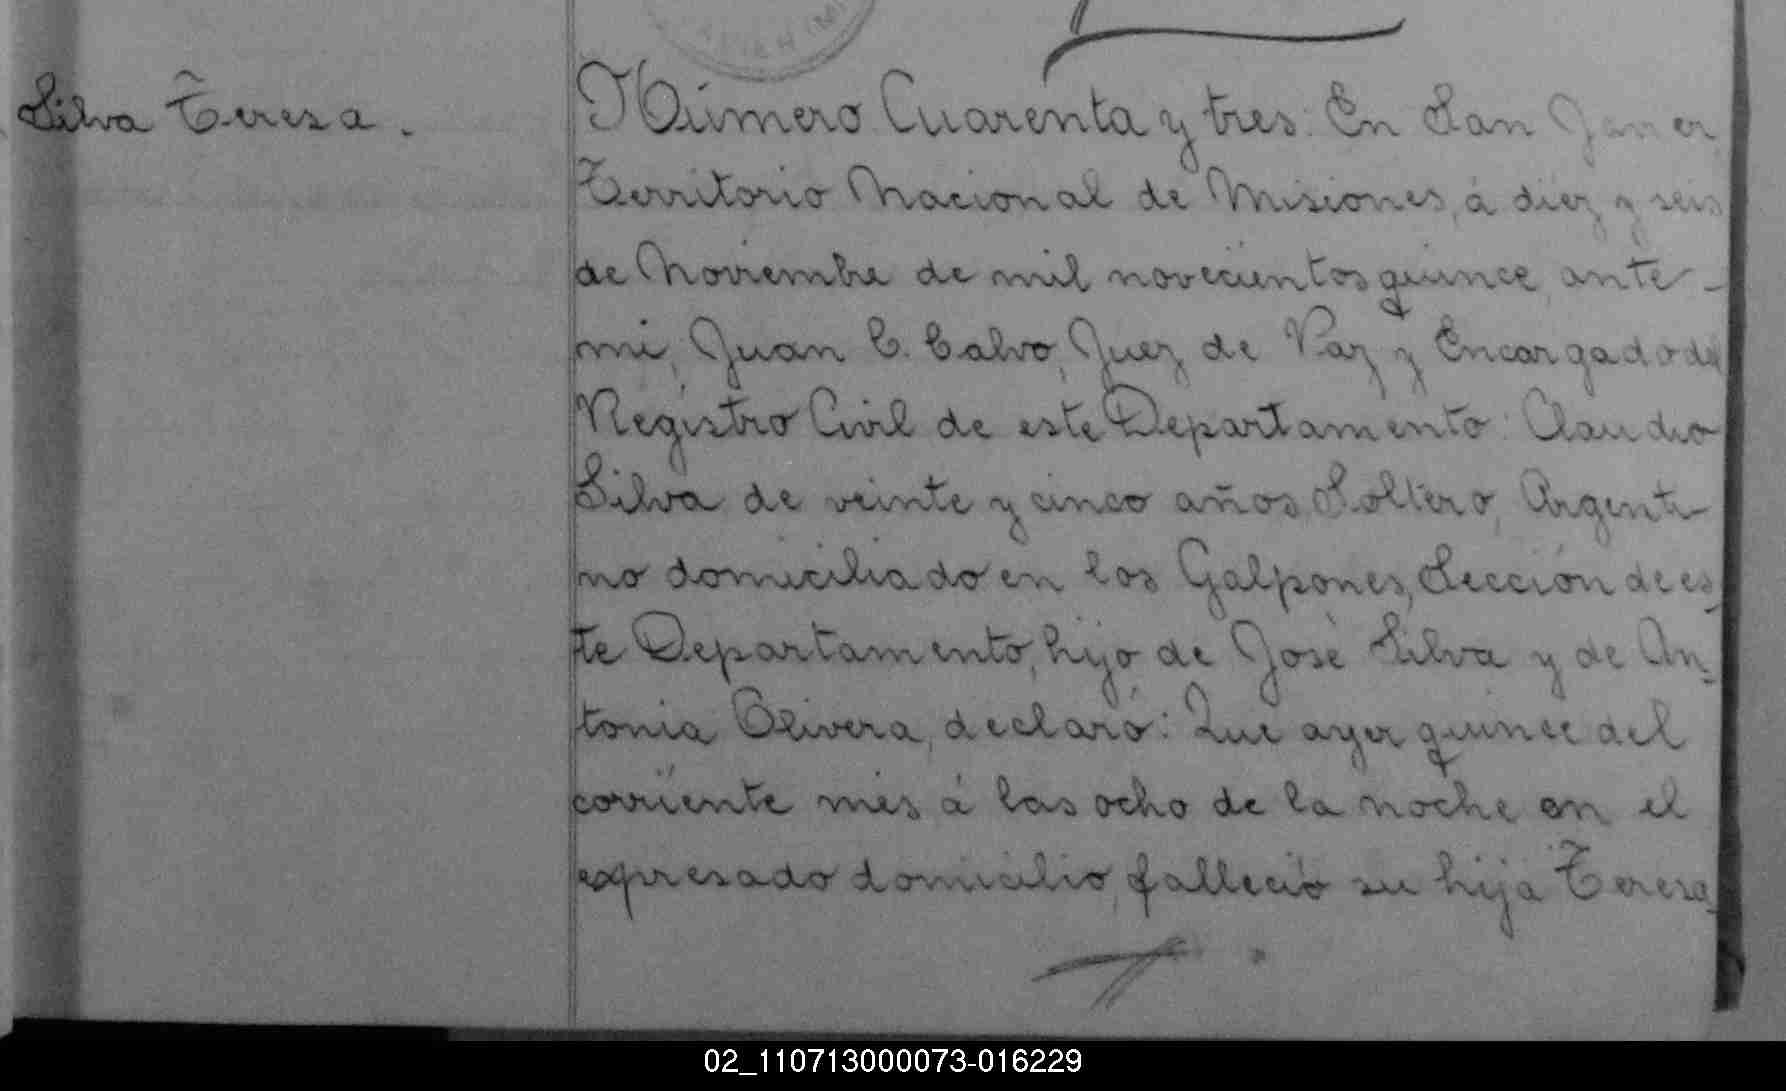 Silva Teresa.
Número Cuarenta y tres: En San Javier
Territorio Nacional de Misiones, á diéz y seis
de Noviembre de mil novecientos quince, ante-
mi, Juan C. Calvo, Juez de Paz y Encargado del
Registro Civil de este Departamento: Claudio
Silva de veinte y cinco años, Soltero, Argenti-
no domiciliado en los Galpones, Sección de es-
te Departamento, hijo de José Silva y de An-
tonia Olivera, declaró: Que ayer quince del
corriente més á las ocho de la noche en el
expresado domicilio, falleció su hija Teresa
02_110713000073-016229